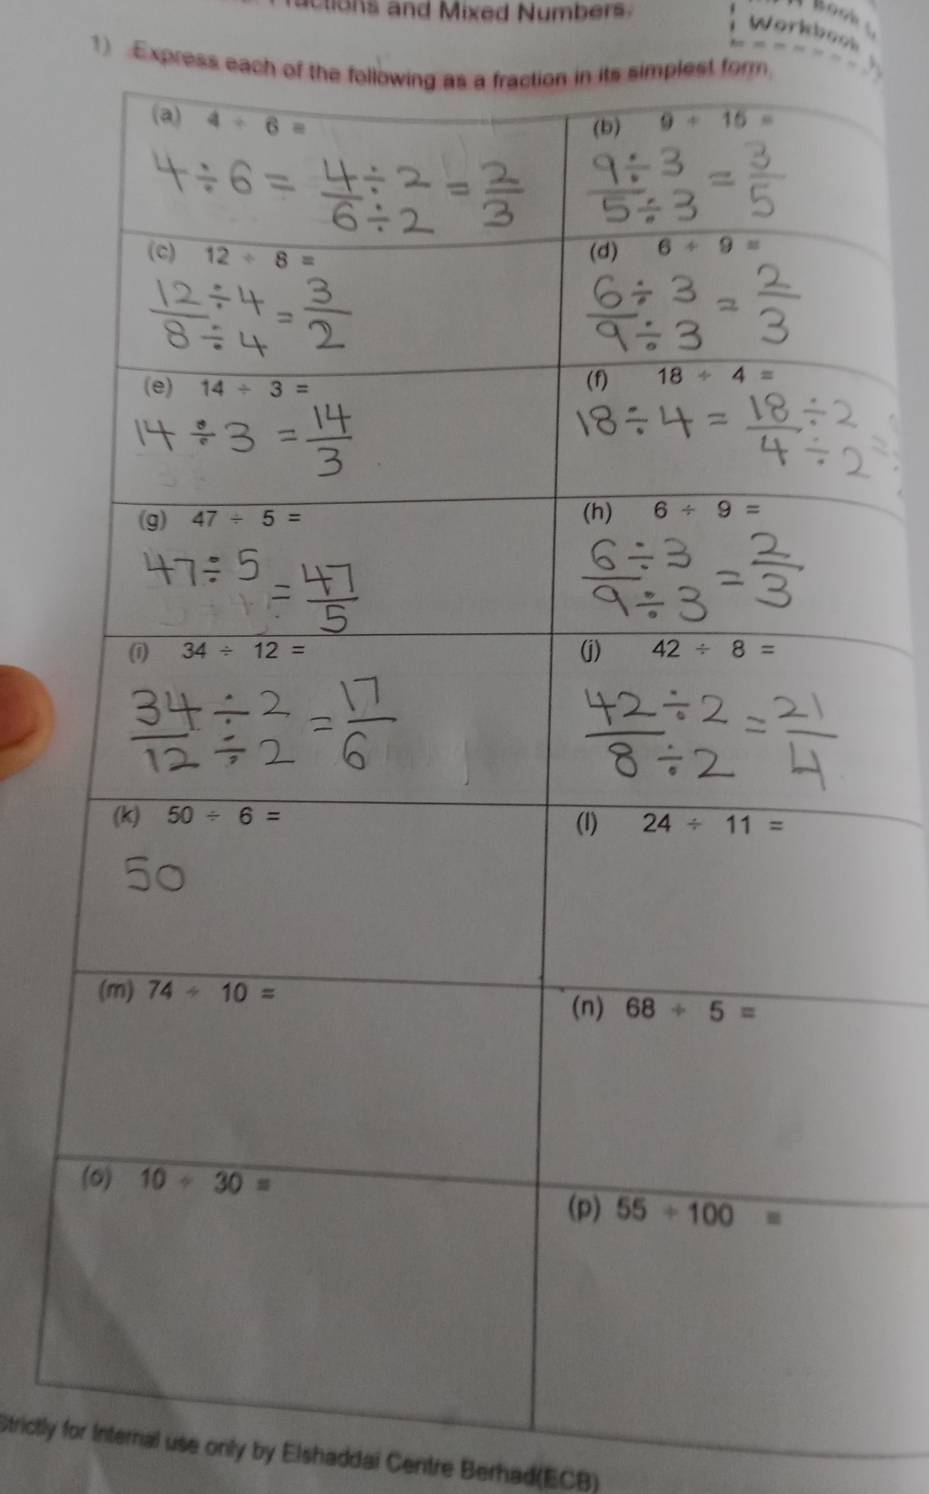 and Mixed Numbers.
Book
Workbook
1) Express each of the following as a fraction in its simplest form.
(a) 4 ÷ 6 =
4 ÷ 6 = 4 ÷ 2 / 6 ÷ 2 = 2/3
(b) 9 ÷ 15 =
9 ÷ 3 / 5 ÷ 3 = 3/5
(c) 12 ÷ 8 =
12 ÷ 4 / 8 ÷ 4 = 3/2
(d) 6 ÷ 9 =
6 ÷ 3 / 9 ÷ 3 = 2/3
(e) 14 ÷ 3 =
14 ÷ 3 = 14/3
(f) 18 ÷ 4 =
18 ÷ 4 = 18 ÷ 2 / 4 ÷ 2 =
(g) 47 ÷ 5 =
47 ÷ 5 = 47/5
(h) 6 ÷ 9 =
6 ÷ 3 / 9 ÷ 3 = 2/3
(i) 34 ÷ 12 =
34 ÷ 2 / 12 ÷ 2 = 17/6
(j) 42 ÷ 8 =
42 ÷ 2 / 8 ÷ 2 = 21/4
(k) 50 ÷ 6 =
50
(l) 24 ÷ 11 =
(m) 74 ÷ 10 =
(n) 68 ÷ 5 =
(o) 10 ÷ 30 =
(p) 55 ÷ 100 =
Strictly for Internal use only by Elshaddai Centre Berhad(ECB)